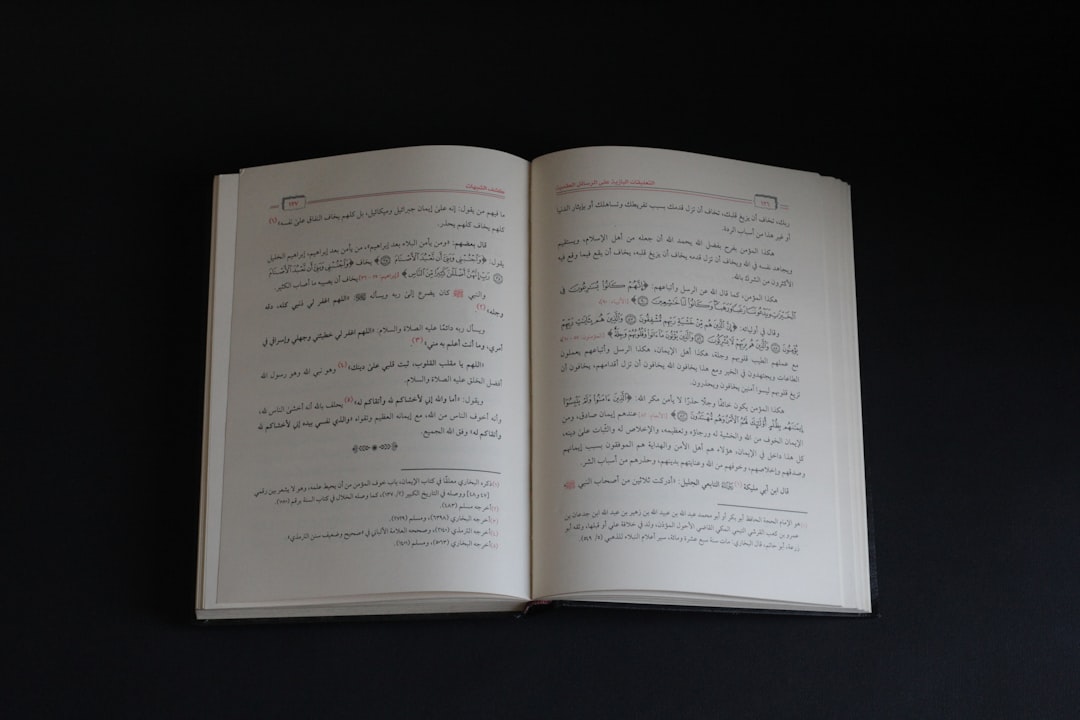 التعليقات البازية على الرسائل العقدية
١٣٦
ربك، تخاف أن يزيغ قلبك، تخاف أن تزل قدمك بسبب تفريطك وتساهلك أو بإيثار الدنيا
أو غير هذا من أسباب الردة.
هكذا المؤمن يفرح بفضل الله يحمد الله أن جعله من أهل الإسلام، ويستقيم
ويجاهد نفسه في الله ويخاف أن تزل قدمه يخاف أن يزيغ قلبه، يخاف أن يقع فيما وقع فيه
الأكثرون من الشرك بالله.
هكذا المؤمن، كما قال الله عن الرسل وأتباعهم: ﴿إِنَّهُمْ كَانُوا يُسَارِعُونَ فِي
الْخَيْرَاتِ وَيَدْعُونَنَا رَغَبًا وَرَهَبًا وَكَانُوا لَنَا خَاشِعِينَ ۝٩٠﴾ [الأنبياء: ٩٠]
وقال في أوليائه: ﴿إِنَّ الَّذِينَ هُم مِّنْ خَشْيَةِ رَبِّهِم مُّشْفِقُونَ ۝٥٧ وَالَّذِينَ هُم بِآيَاتِ رَبِّهِمْ
يُؤْمِنُونَ ۝٥٨ وَالَّذِينَ هُم بِرَبِّهِمْ لَا يُشْرِكُونَ ۝٥٩ وَالَّذِينَ يُؤْتُونَ مَا آتَوا وَّقُلُوبُهُمْ وَجِلَةٌ﴾ [المؤمنون: ٥٧ - ٦٠]
مع عملهم الطيب قلوبهم وجلة، هكذا أهل الإيمان، هكذا الرسل وأتباعهم يعملون
الطاعات ويجتهدون في الخير ومع هذا يخافون الله يخافون أن تزل أقدامهم، يخافون أن
تزيغ قلوبهم ليسوا آمنين يخافون ويحذرون.
هكذا المؤمن يكون خائفًا وجلًا حذرًا لا يأمن مكر الله: ﴿الَّذِينَ آمَنُوا وَلَمْ يَلْبِسُوا
إِيمَانَهُم بِظُلْمٍ أُولَٰئِكَ لَهُمُ الْأَمْنُ وَهُم مُّهْتَدُونَ ۝٨٢﴾ [الأنعام: ٨٢] عندهم إيمان صادق، ومن
الإيمان الخوف من الله والخشية له ورجاؤه وتعظيمه، والإخلاص له والثبات على دينه،
كل هذا داخل في الإيمان، هؤلاء هم أهل الأمن والهداية هم الموفقون بسبب إيمانهم
وصدقهم وإخلاصهم، وخوفهم من الله وعنايتهم بدينهم، وحذرهم من أسباب الشر.
قال ابن أبي مليكة (١) التابعي الجليل: «أدركت ثلاثين من أصحاب النبي ﷺ
(١) هو الإمام الحجة الحافظ أبو بكر أو أبو محمد عبد الله بن عبيد الله بن زهير بن عبد الله ابن جدعان بن
عمرو بن كعب القرشي التيمي المكي القاضي الأحول المؤذن، ولد في خلافة علي أو قبلها، وثقه أبو
زرعة، أبو حاتم، قال البخاري: مات سنة سبع عشرة ومائة، سير أعلام النبلاء للذهبي
كشف الشبهات
١٣٧
ما فيهم من يقول: إنه على إيمان جبرائيل وميكائيل، بل كلهم يخاف النفاق على نفسه»(١)
كلهم يخاف كلهم يحذر.
قال بعضهم: «ومن يأمن البلاء بعد إبراهيم»، من يأمن بعد إبراهيم، إبراهيم الخليل
يقول: ﴿وَاجْنُبْنِي وَبَنِيَّ أَن نَّعْبُدَ الْأَصْنَامَ ۝٣٥﴾ يخاف ﴿وَاجْنُبْنِي وَبَنِيَّ أَن نَّعْبُدَ الْأَصْنَامَ
۝٣٥ رَبِّ إِنَّهُنَّ أَضْلَلْنَ كَثِيرًا مِّنَ النَّاسِ﴾ [إبراهيم: ٣٥ - ٣٦] يخاف أن يصيبه ما أصاب الكثير.
والنبي ﷺ كان يضرع إلى ربه ويسأله ﷻ «اللهم اغفر لي ذنبي كله، دقه
وجله»(٢)
ويسأل ربه دائمًا عليه الصلاة والسلام: «اللهم اغفر لي خطيئتي وجهلي وإسرافي في
أمري، وما أنت أعلم به مني»(٣)
«اللهم يا مقلب القلوب، ثبت قلبي على دينك»(٤) وهو نبي الله وهو رسول الله
أفضل الخلق عليه الصلاة والسلام.
ويقول: «أما والله إني لأخشاكم لله وأتقاكم له»(٥) يحلف بالله أنه أخشى الناس لله،
وأنه أخوف الناس من الله، مع إيمانه العظيم وتقواه، «والذي نفسي بيده إني لأخشاكم لله
وأتقاكم له» وفق الله الجميع.
(١) ذكره البخاري معلقًا في كتاب الإيمان، باب خوف المؤمن من أن يحبط عمله، وهو لا يشعر بين رقمي
ووصله في التاريخ الكبير كما وصله الخلال في كتاب السنة برقم
(٢) أخرجه مسلم (٤٨٣).
(٣) أخرجه البخاري (٦٣٩٨)، ومسلم (٢٧١٩).
(٤) أخرجه الترمذي (٢١٤٠)، وصححه العلامة الألباني في «صحيح وضعيف سنن الترمذي».
(٥) أخرجه البخاري (٥٠٦٣)، ومسلم (١٤٠١).